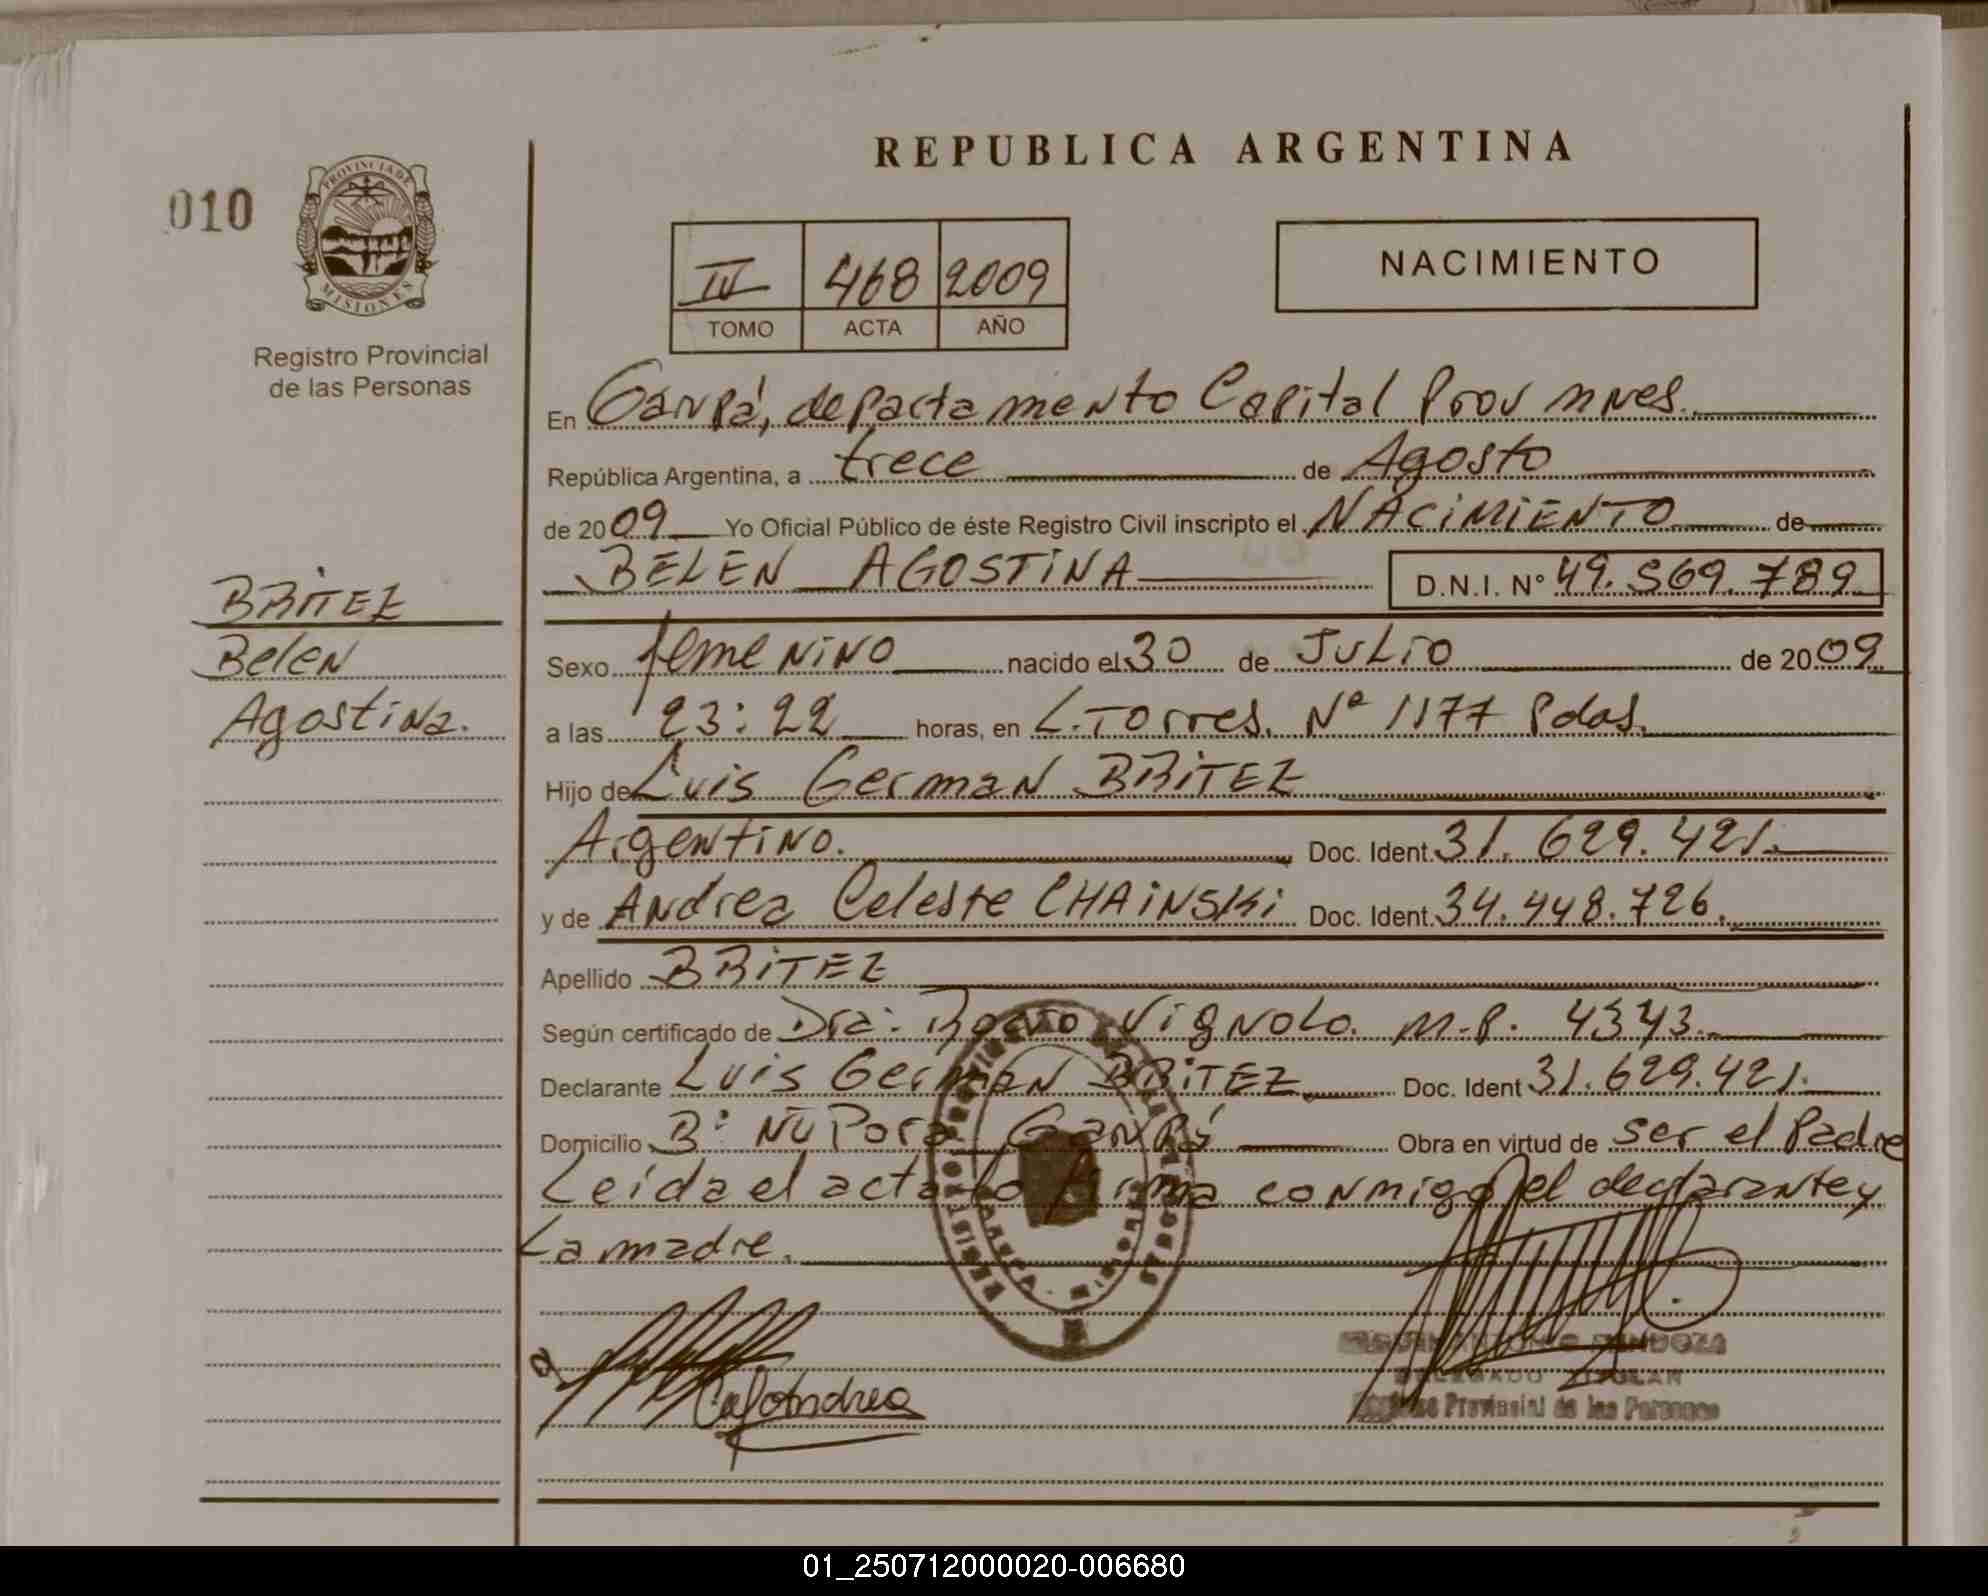 REPUBLICA ARGENTINA
010
PROVINCIA DE
MISIONES
Registro Provincial
de las Personas
IV 468 2009
TOMO ACTA AÑO
NACIMIENTO
En Garupá, departamento Capital Prov Mnes.
República Argentina, a trece de Agosto
de 2009 Yo Oficial Público de éste Registro Civil inscripto el NACIMIENTO de
BELEN AGOSTINA D.N.I. Nº 49.569.789
BRITEZ
Belen
Agostina.
Sexo femenino nacido el 30 de JULIO de 2009
a las 23:22 horas, en L. Torres. Nº 1177 Pdas.
Hijo de Luis German BRITEZ
Argentino. Doc. Ident. 31.629.421.
y de Andrea Celeste CHAINSKi Doc. Ident. 34.448.726.
Apellido BRITEZ
Según certificado de Dra. Rocio Vignolo. M.P. 4343.
Declarante Luis German BRITEZ Doc. Ident 31.629.421.
Domicilio Bº Ñu Pora Garupá Obra en virtud de ser el Padre
Leída el acta la firma conmigo el declarante y
La madre.
MENDOZA
DELEGADO TITULAR
Provincial de las Personas
01_250712000020-006680